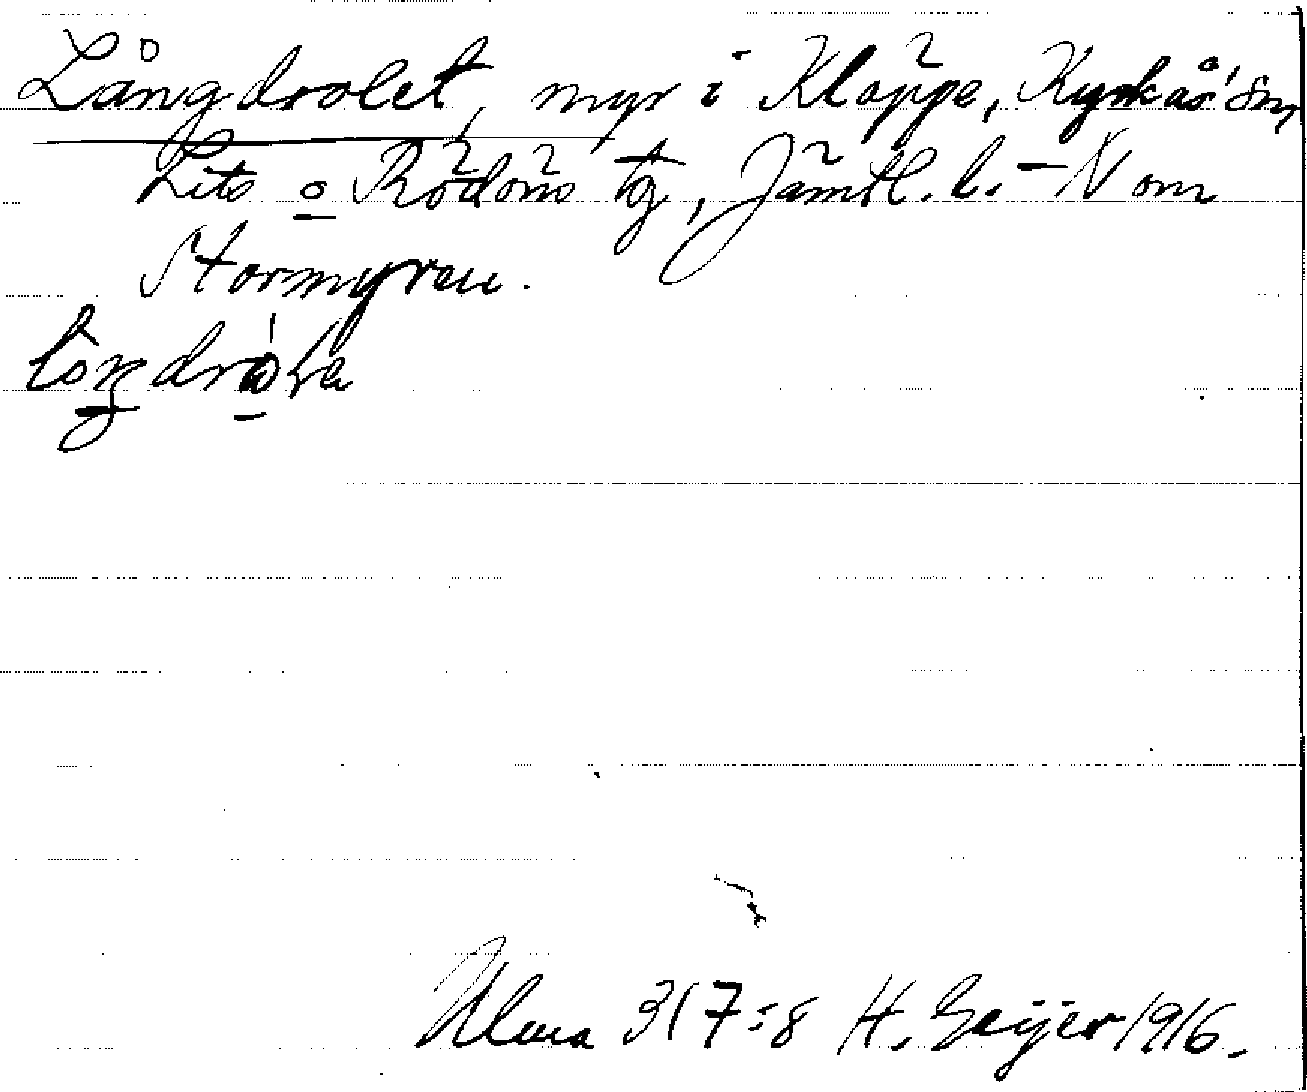 Långdrolet, myr i Kläppe, Kyrkås' sn,
Lits o Rödöns tg, Jämtl. l. – N om
Stormyren.
Ulma 317:8 H. Geijer 1916.